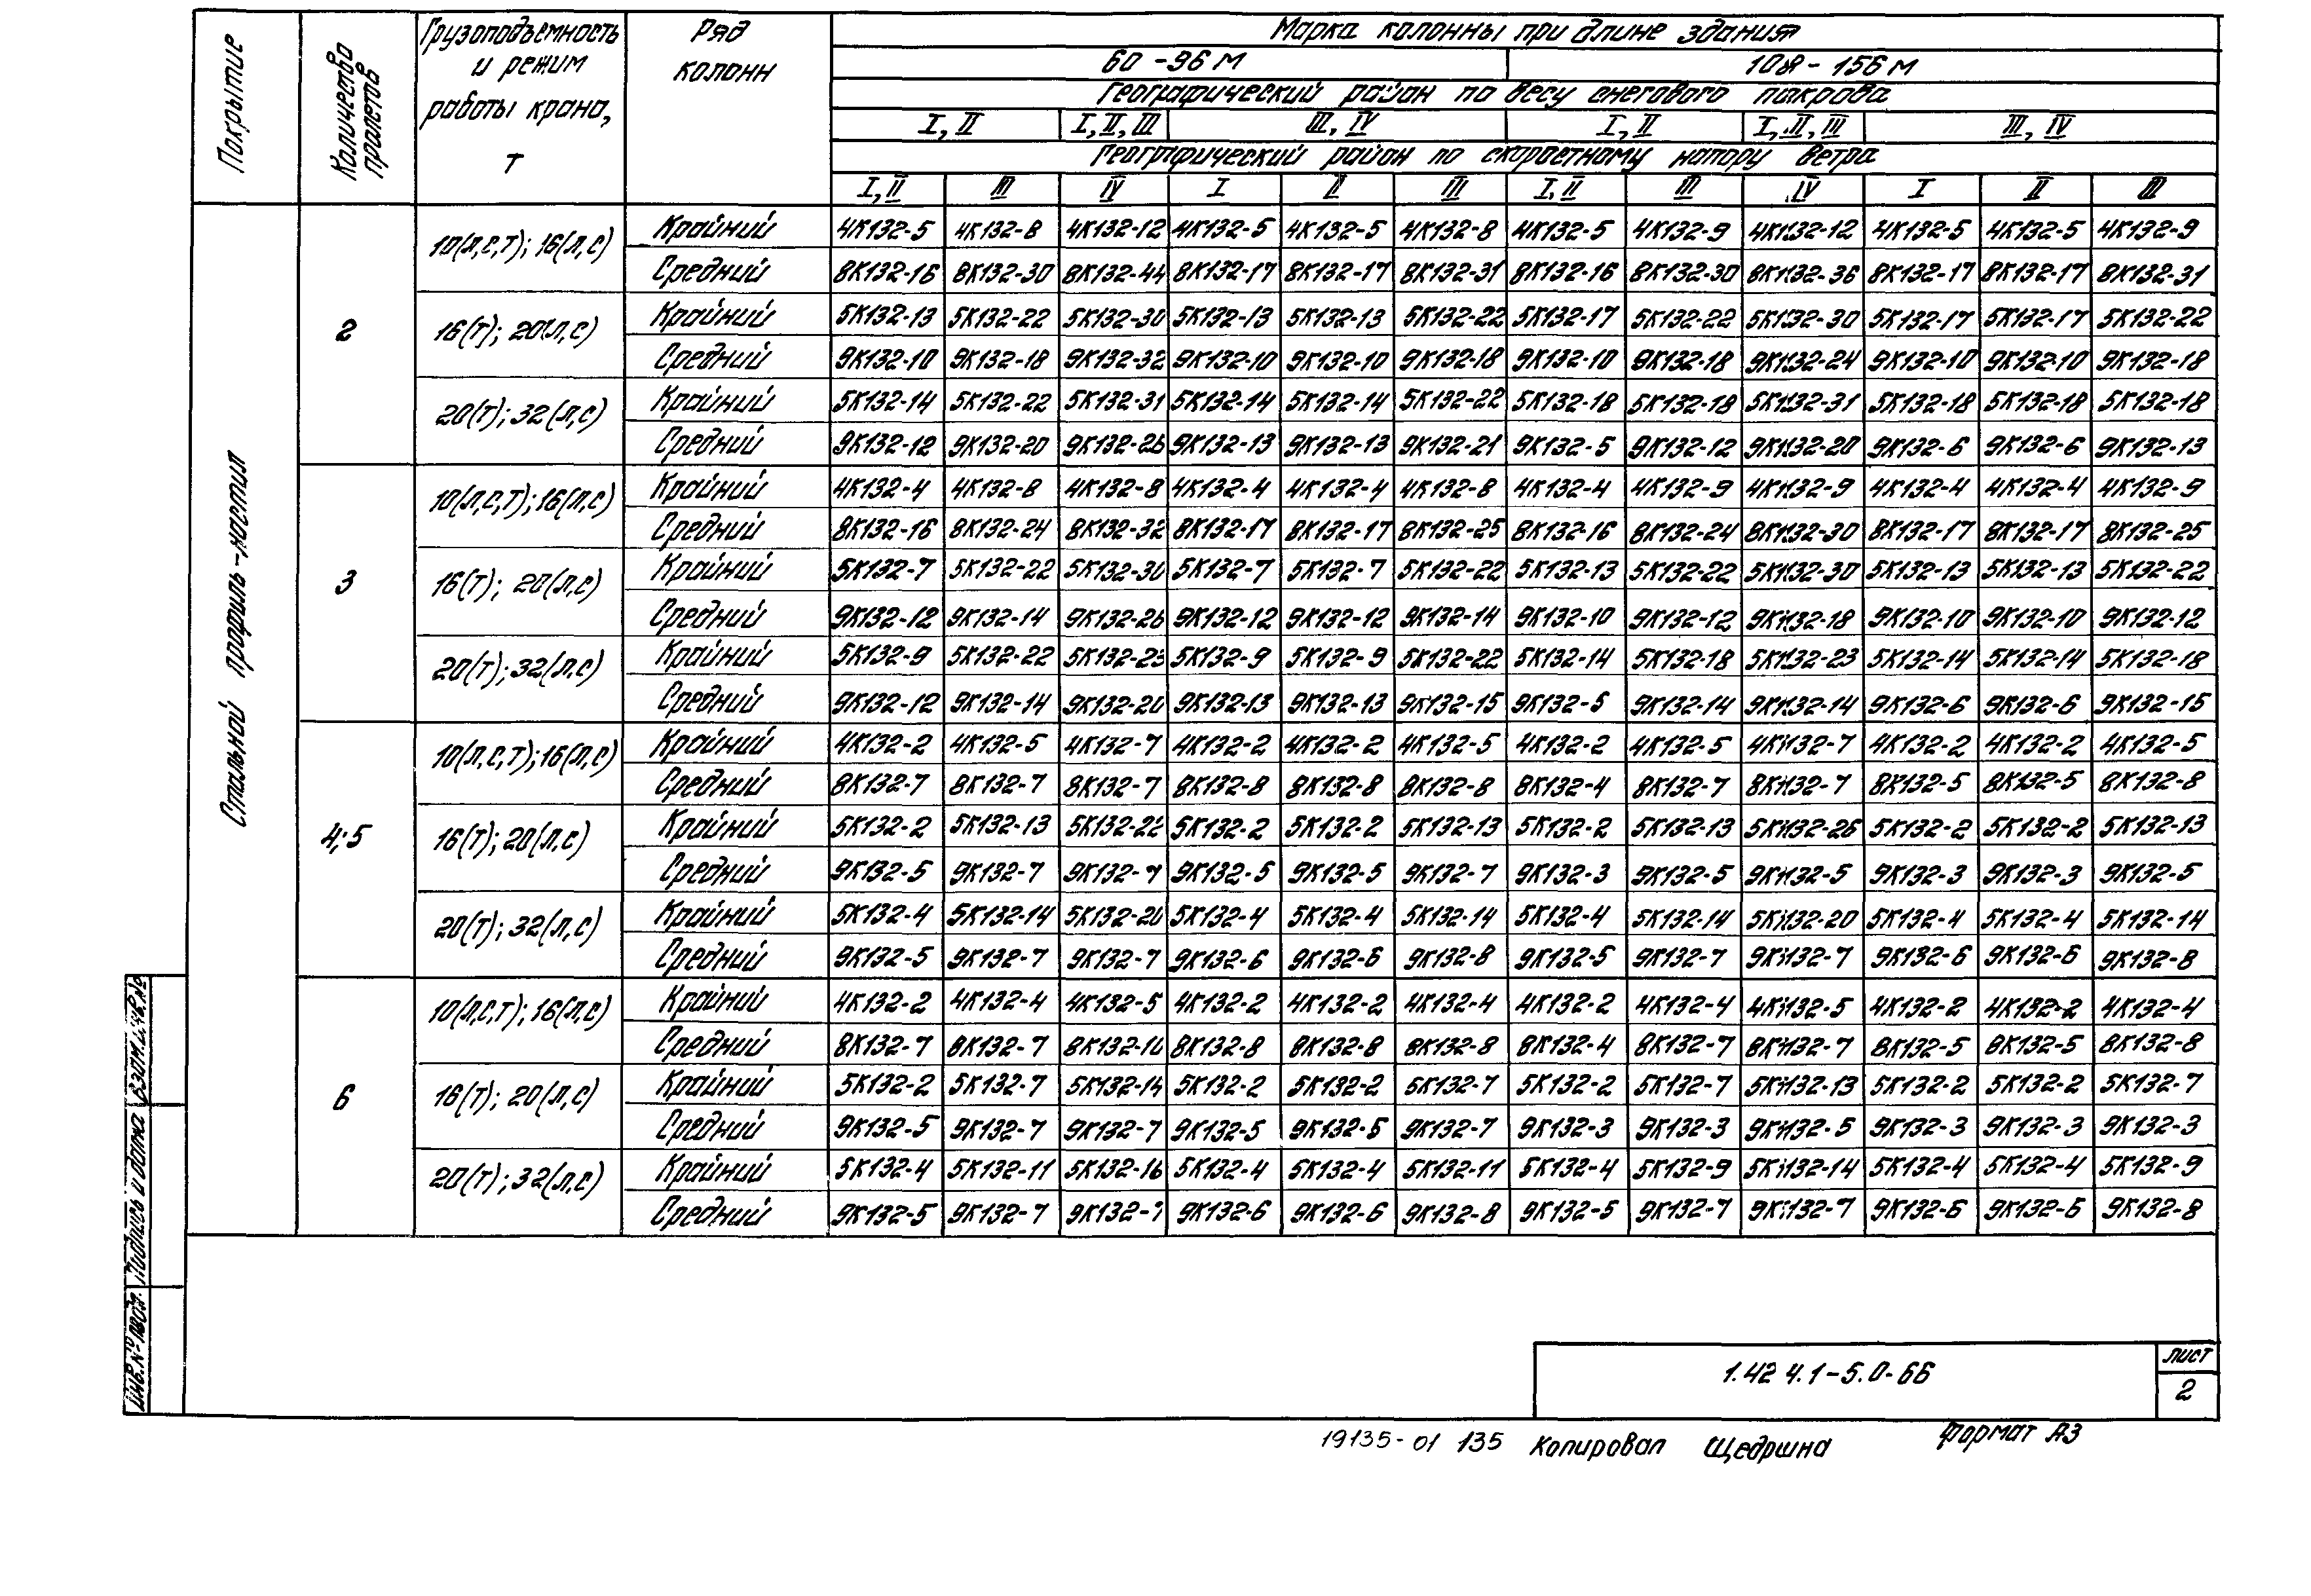 Покрытие
Количество пролетов
Грузоподъемность и режим работы крана, т
Ряд колонн
Марка колонны при длине здания
60 - 96 м 108 - 156 м
Географический район по весу снегового покрова
I, II I, II, III III, IV I, II I, II, III III, IV
Географический район по скоростному напору ветра
I, II III IV I II III I, II III IV I II III
Стальной профиль-настил
2
10(л,с,т); 16(л,с)
Крайний 4К132-5 4К132-8 4К132-12 4К132-5 4К132-5 4К132-8 4К132-5 4К132-9 4К132-12 4К132-5 4К132-5 4К132-9
Средний 8К132-16 8К132-30 8К132-44 8К132-17 8К132-17 8К132-31 8К132-16 8К132-30 8К132-36 8К132-17 8К132-17 8К132-31
16(т); 20(л,с)
Крайний 5К132-13 5К132-22 5К132-30 5К132-13 5К132-13 5К132-22 5К132-17 5К132-22 5К132-30 5К132-17 5К132-17 5К132-22
Средний 9К132-10 9К132-18 9К132-32 9К132-10 9К132-10 9К132-18 9К132-10 9К132-18 9К132-24 9К132-10 9К132-10 9К132-18
20(т); 32(л,с)
Крайний 5К132-14 5К132-22 5К132-31 5К132-14 5К132-14 5К132-22 5К132-18 5К132-18 5К132-31 5К132-18 5К132-18 5К132-18
Средний 9К132-12 9К132-20 9К132-26 9К132-13 9К132-13 9К132-21 9К132-5 9К132-12 9К132-20 9К132-6 9К132-6 9К132-13
3
10(л,с,т); 16(л,с)
Крайний 4К132-4 4К132-8 4К132-8 4К132-4 4К132-4 4К132-8 4К132-4 4К132-9 4К132-9 4К132-4 4К132-4 4К132-9
Средний 8К132-16 8К132-24 8К132-32 8К132-17 8К132-17 8К132-25 8К132-16 8К132-24 8К132-30 8К132-17 8К132-17 8К132-25
16(т); 20(л,с)
Крайний 5К132-7 5К132-22 5К132-30 5К132-7 5К132-7 5К132-22 5К132-13 5К132-22 5К132-30 5К132-13 5К132-13 5К132-22
Средний 9К132-12 9К132-14 9К132-26 9К132-12 9К132-12 9К132-14 9К132-10 9К132-12 9К132-18 9К132-10 9К132-10 9К132-12
20(т); 32(л,с)
Крайний 5К132-9 5К132-22 5К132-23 5К132-9 5К132-9 5К132-22 5К132-14 5К132-18 5К132-23 5К132-14 5К132-14 5К132-18
Средний 9К132-12 9К132-14 9К132-20 9К132-13 9К132-13 9К132-15 9К132-5 9К132-14 9К132-14 9К132-6 9К132-6 9К132-15
4; 5
10(л,с,т); 16(л,с)
Крайний 4К132-2 4К132-5 4К132-7 4К132-2 4К132-2 4К132-5 4К132-2 4К132-5 4К132-7 4К132-2 4К132-2 4К132-5
Средний 8К132-7 8К132-7 8К132-7 8К132-8 8К132-8 8К132-8 8К132-4 8К132-7 8К132-7 8К132-5 8К132-5 8К132-8
16(т); 20(л,с)
Крайний 5К132-2 5К132-13 5К132-22 5К132-2 5К132-2 5К132-13 5К132-2 5К132-13 5К132-26 5К132-2 5К132-2 5К132-13
Средний 9К132-5 9К132-7 9К132-7 9К132-5 9К132-5 9К132-7 9К132-3 9К132-5 9К132-5 9К132-3 9К132-3 9К132-5
20(т); 32(л,с)
Крайний 5К132-4 5К132-14 5К132-20 5К132-4 5К132-4 5К132-14 5К132-4 5К132-14 5К132-20 5К132-4 5К132-4 5К132-14
Средний 9К132-5 9К132-7 9К132-7 9К132-6 9К132-6 9К132-8 9К132-5 9К132-7 9К132-7 9К132-6 9К132-6 9К132-8
6
10(л,с,т); 16(л,с)
Крайний 4К132-2 4К132-4 4К132-5 4К132-2 4К132-2 4К132-4 4К132-2 4К132-4 4К132-5 4К132-2 4К132-2 4К132-4
Средний 8К132-7 8К132-7 8К132-10 8К132-8 8К132-8 8К132-8 8К132-4 8К132-7 8К132-7 8К132-5 8К132-5 8К132-8
16(т); 20(л,с)
Крайний 5К132-2 5К132-7 5К132-14 5К132-2 5К132-2 5К132-7 5К132-2 5К132-7 5К132-13 5К132-2 5К132-2 5К132-7
Средний 9К132-5 9К132-7 9К132-7 9К132-5 9К132-5 9К132-7 9К132-3 9К132-3 9К132-5 9К132-3 9К132-3 9К132-3
20(т); 32(л,с)
Крайний 5К132-4 5К132-11 5К132-16 5К132-4 5К132-4 5К132-11 5К132-4 5К132-9 5К132-14 5К132-4 5К132-4 5К132-9
Средний 9К132-5 9К132-7 9К132-7 9К132-6 9К132-6 9К132-8 9К132-5 9К132-7 9К132-7 9К132-6 9К132-6 9К132-8
Взам.инв.№
Подпись и дата
Инв.№ подл.
1.424.1-5.0-6Б
лист
2
19135-01 135 Копировал Щедрина Формат А3